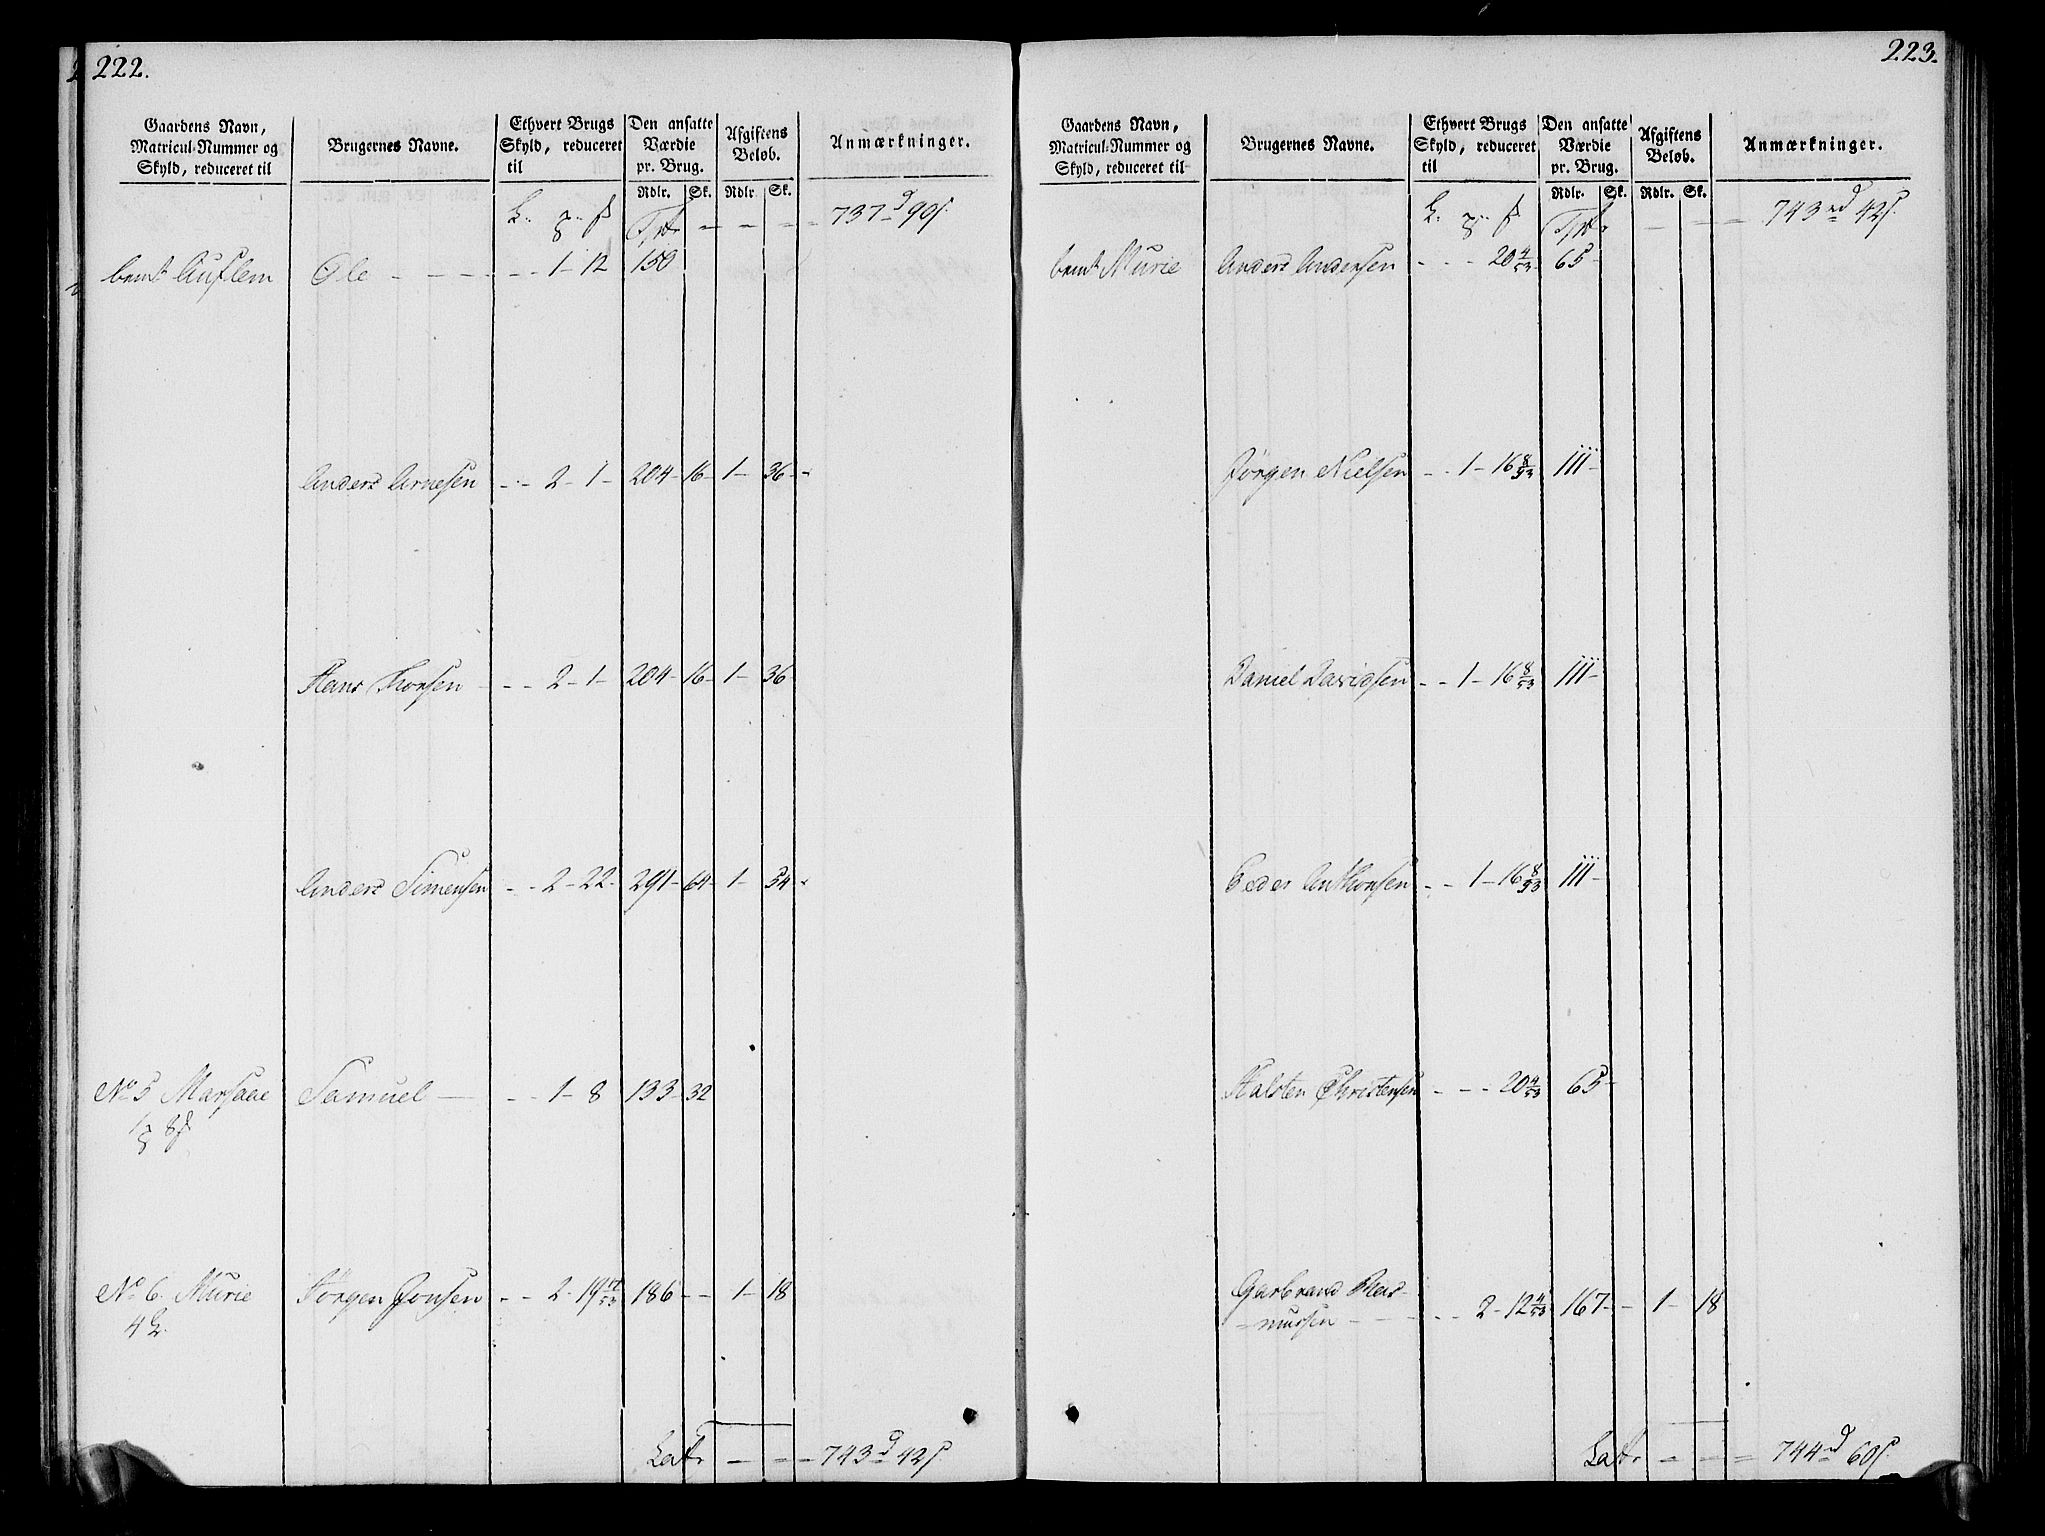 222.
Gaardens Navn, Matricul-Nummer og Skyld, reduceret til
Brugernes Navne.
Ethvert Brugs Skyld, reduceret til
Den ansatte Værdie pr. Brug.
Afgiftens Beløb.
Anmærkninger.
Rdlr. Sk. Rdlr Sk.
737 d 90 s.
bemt Auflem Ole - - - 1 - 12 150
Anders Arnesen - - 2 - 1 - 204 - 16 - 1 - 36 -
Hans Thorsen - - 2 - 1 - 204 - 16 - 1 - 36
Anders Simensen - - 2 - 22 - 291 - 64 - 1 - 54
No 5 Marsaae Samuel - - 1 - 8 133 - 32
1 8
No 6. Murie Jörgen Jonsen - - 2 - 19 17/53 186 - - 1 - 18
4
Latr - - - 743 d 42 s.
223.
Gaardens Navn, Matricul-Nummer og Skyld, reduceret til
Brugernes Navne.
Ethvert Brugs Skyld, reduceret til
Den ansatte Værdie pr. Brug.
Afgiftens Beløb.
Anmærkninger.
Rdlr. Sk. Rdlr. Sk.
743 rd 42 s.
bemt Murie Anders Andersen - - - 20 4/53 65 -
Jörgen Nielsen - - 1 - 16 8/53 111 -
Daniel Davidsen - - 1 - 16 8/53 111 -
Peder Anthonsen - - 1 - 16 8/53 111 -
Halsten Christensen - - - 20 4/53 65 -
Garbrand Ras-
=mussen - - - 2 - 12 4/53 167 - - 1 - 18
Latr - - - 744 rd 60 s.